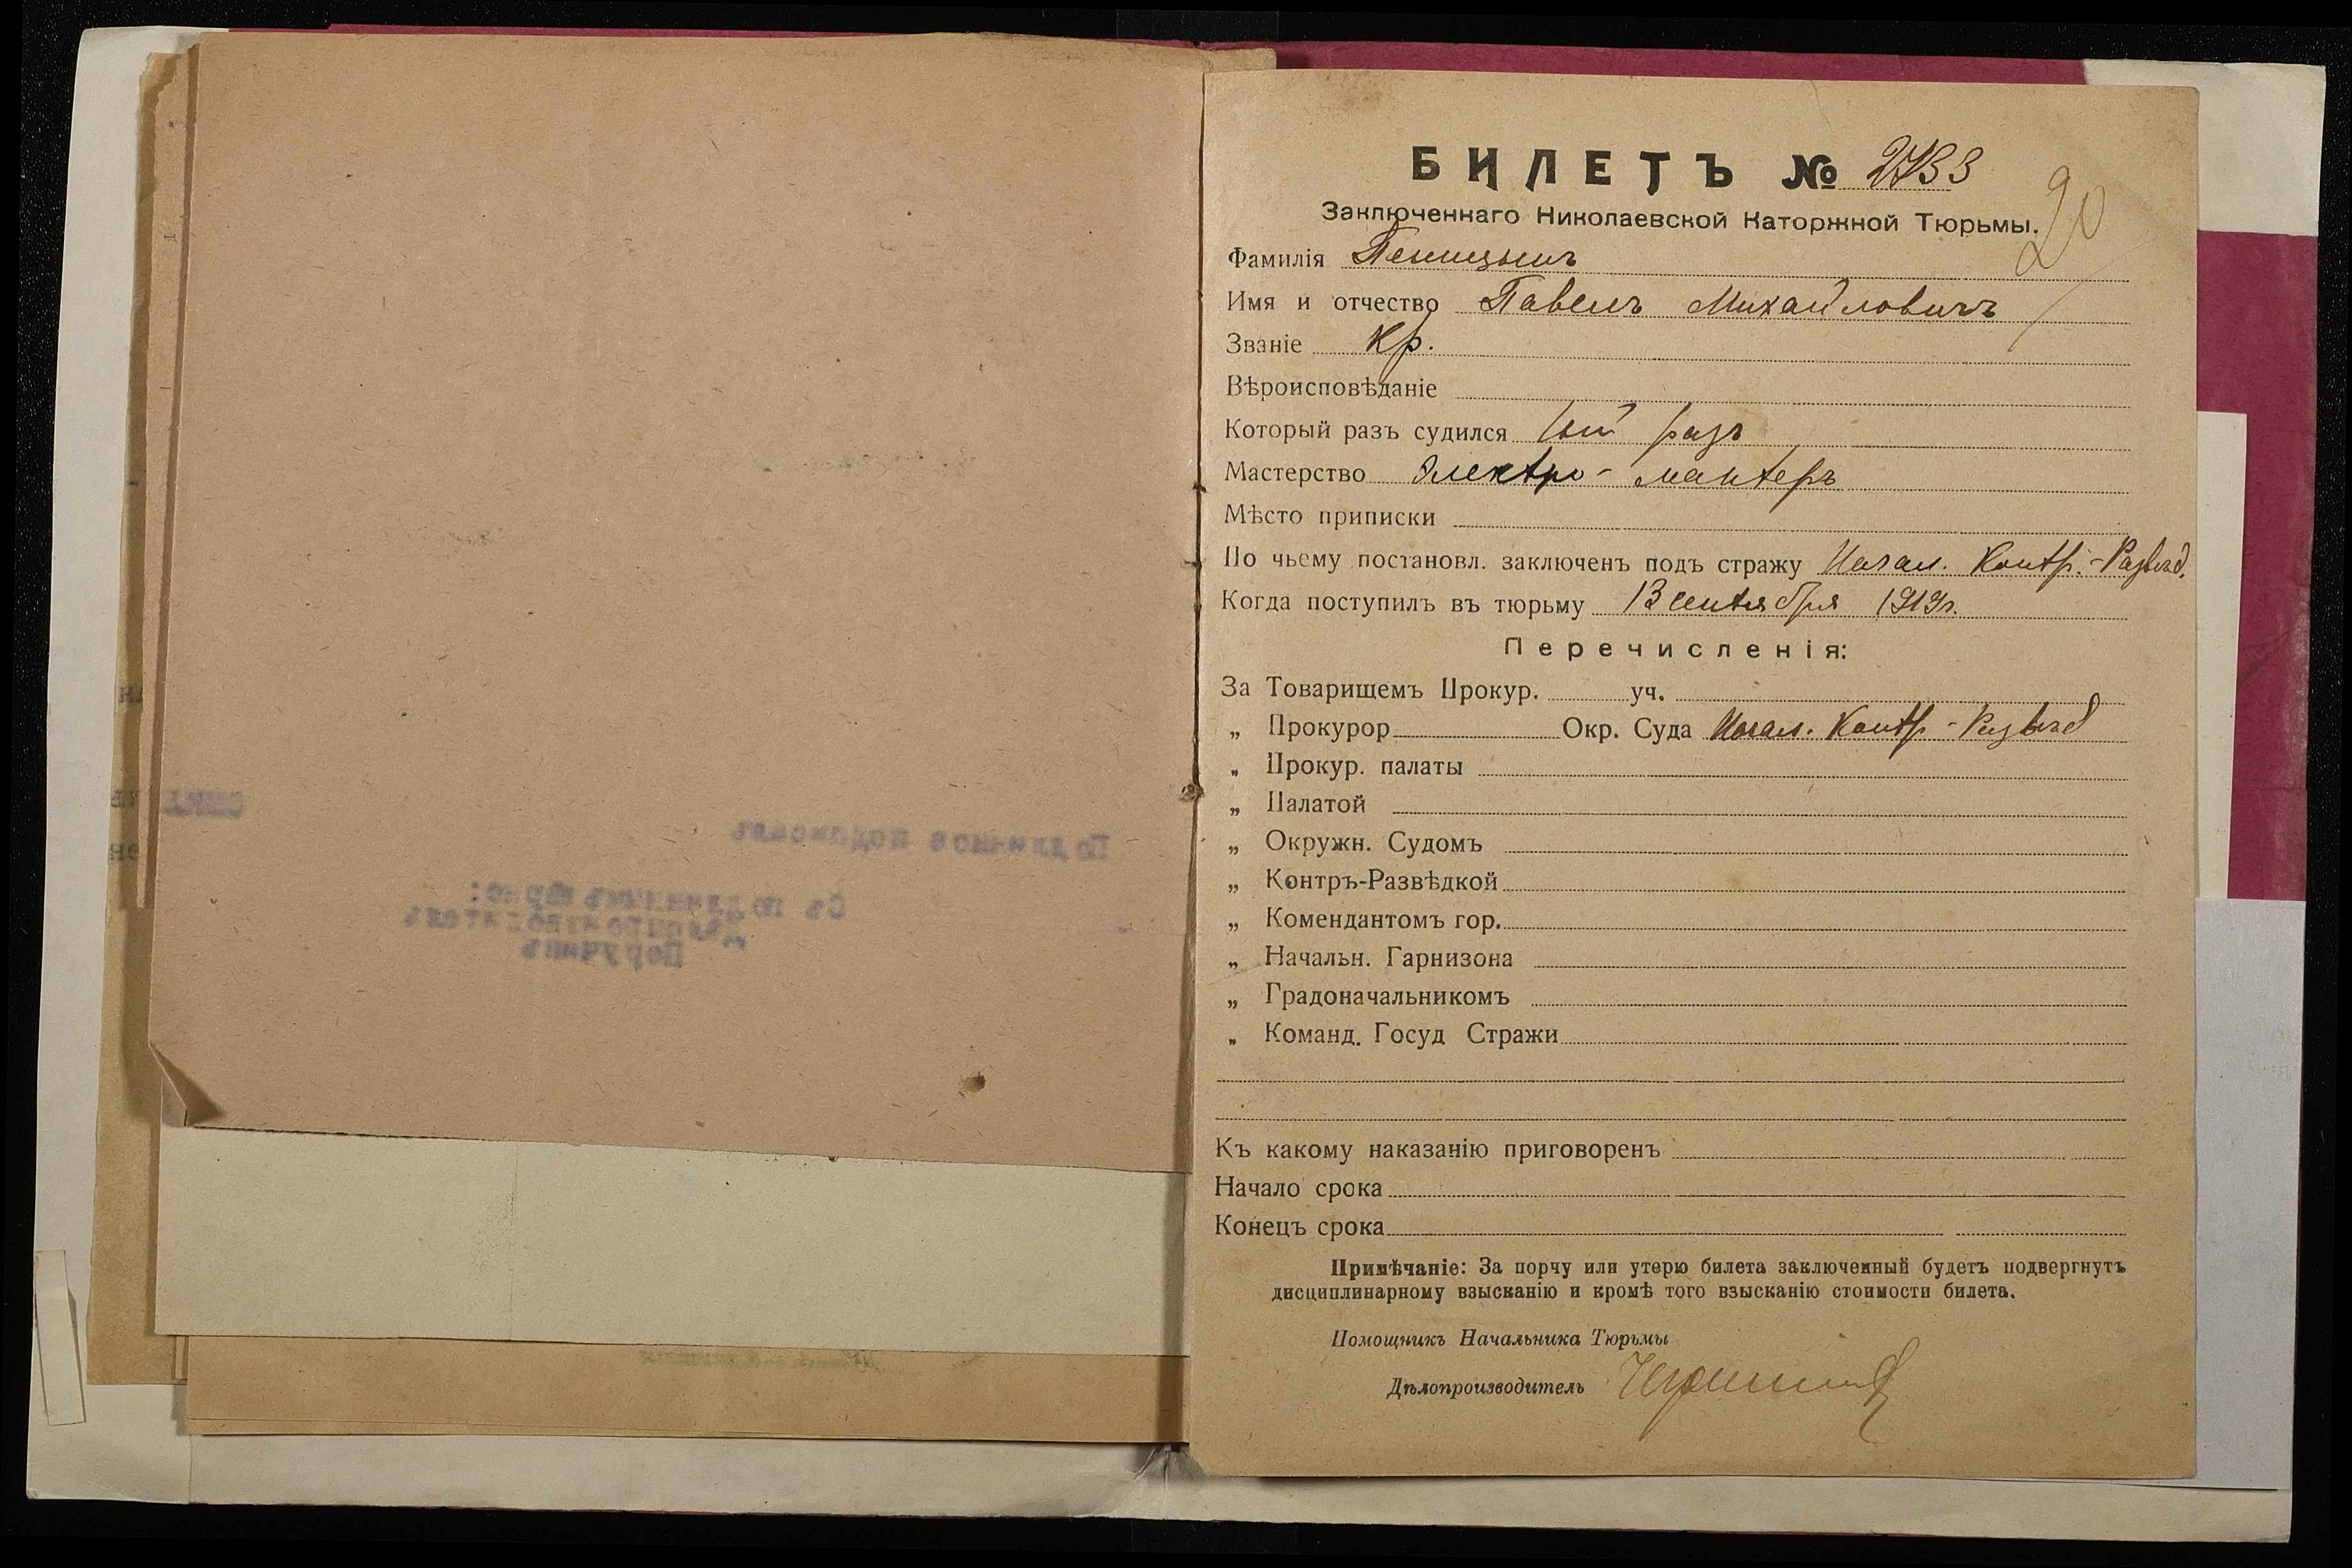 Подлинное подписалъ
Съ подлиннымъ вѣрно:
Дѣлопроизводитель
Поручикъ
БИЛЕТЪ № 2733
20
Заключеннаго Николаевской Каторжной Тюрьмы.
Фамилія
Имя и отчество Павелъ Михайловичъ
Званіе кр.
Вѣроисповѣданіе
Который разъ судился 1ый разъ
Мастерство Электро-мантеръ
Мѣсто приписки
По чьему постановл. заключенъ подъ стражу Начал. Контр.-Развѣд.
Когда поступилъ въ тюрьму 13 сентября 1919 г.
Перечисленія:
За Товарищемъ Прокур. уч.
„ Прокурор Окр. Суда Начал. Контр-Развѣд
„ Прокур. палаты
„ Палатой
„ Окружн. Судомъ
„ Контръ-Развѣдкой
„ Комендантомъ гор.
„ Начальн. Гарнизона
„ Градоначальникомъ
„ Команд. Госуд Стражи
Къ какому наказанію приговоренъ
Начало срока
Конецъ срока
Примѣчаніе: За порчу или утерю билета заключенный будетъ подвергнутъ
дисциплинарному взысканію и кромѣ того взысканію стоимости билета.
Помощникъ Начальника Тюрьмы
Дѣлопроизводитель